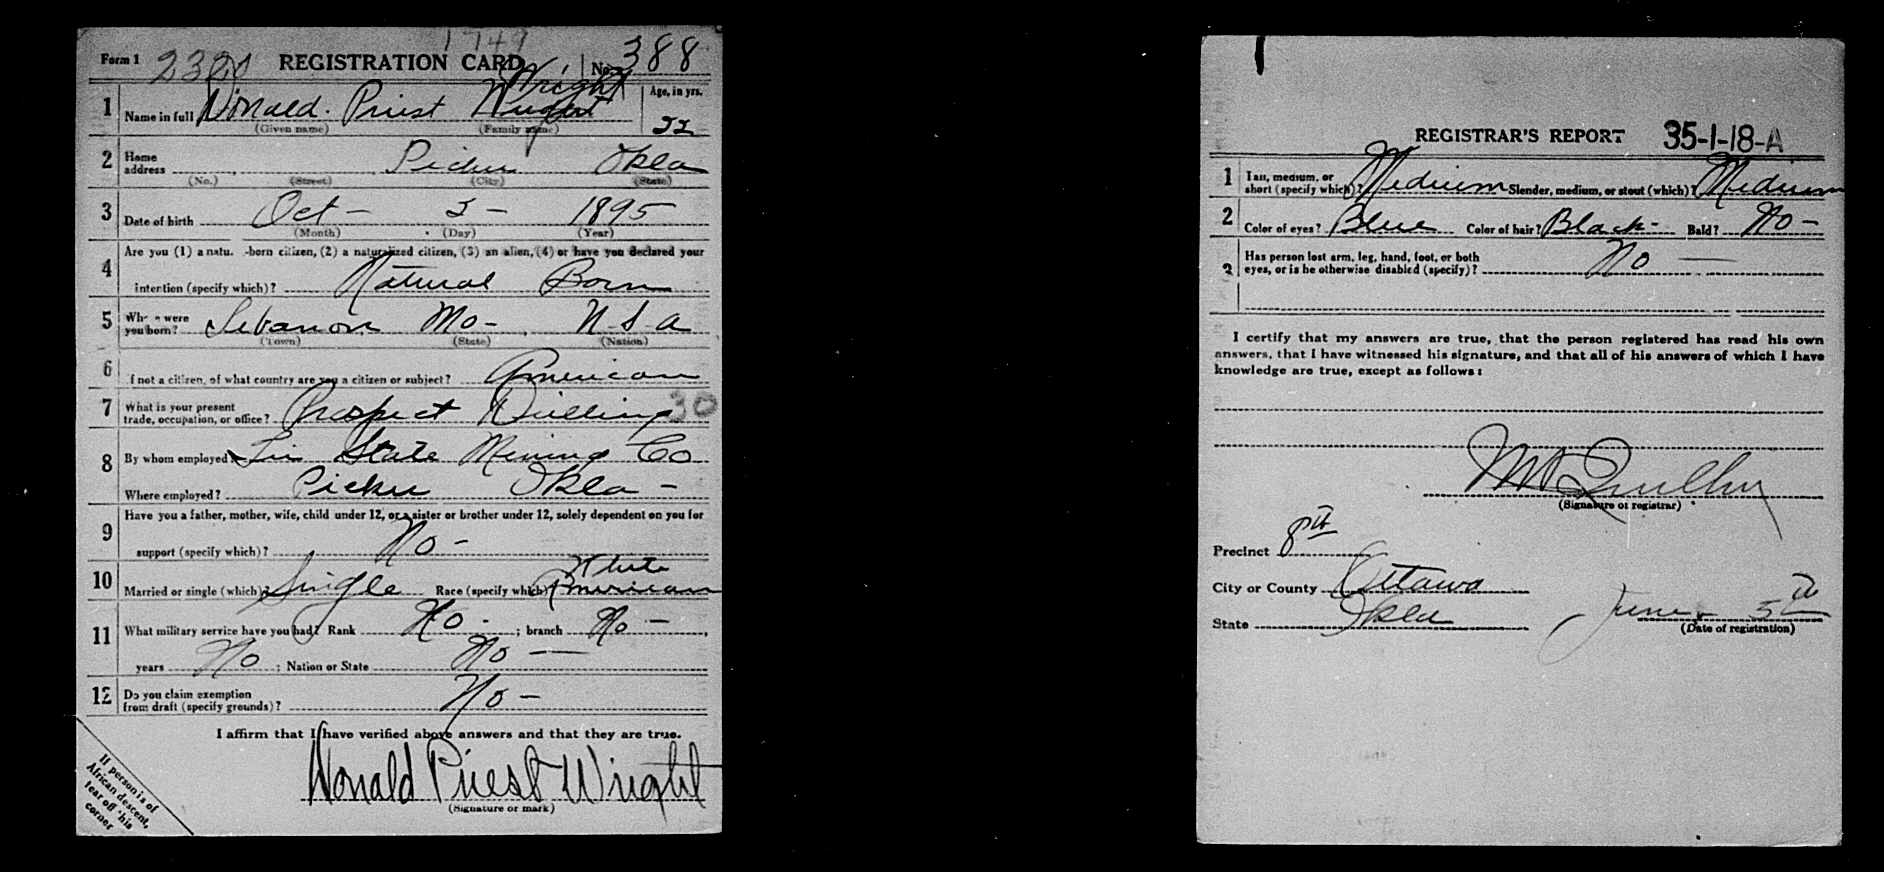 1749
Form 1 2320 REGISTRATION CARD No. 388
1 Name in full Donald Priest Wright Age, in yrs.
(Given name) (Family name) 22
2 Home address Picher Okla
(No.) (Street) (City) (State)
3 Date of birth Oct - 3 - 1895
(Month) (Day) (Year)
4 Are you (1) a natu -born citizen, (2) a naturalized citizen, (3) an alien, (4) or have you declared your
intention (specify which)? Natural Born
5 Where were you born? Lebanon Mo - U S A
(Town) (State) (Nation)
6 If not a citizen, of what country are you a citizen or subject? American
7 What is your present trade, occupation, or office? Prospect Drilling 30
8 By whom employed? Tri State Mining Co
Where employed? Picher Okla -
9 Have you a father, mother, wife, child under 12, or a sister or brother under 12, solely dependent on you for
support (specify which)? No -
White
10 Married or single (which)? Single Race (specify which)? American
11 What military service have you had? Rank No - ; branch No - ,
years No ; Nation or State No -
12 Do you claim exemption from draft (specify grounds)? No -
I affirm that I have verified above answers and that they are true.
Donald Priest Wright
(Signature or mark)
If person is of
African descent,
tear off this
corner
REGISTRAR'S REPORT 35-1-18-A
1 Tall, medium, or short (specify which)? Medium Slender, medium, or stout (which)? Medium
2 Color of eyes? Blue Color of hair? Black - Bald? No -
3 Has person lost arm, leg, hand, foot, or both eyes, or is he otherwise disabled (specify)? No -
I certify that my answers are true, that the person registered has read his own
answers, that I have witnessed his signature, and that all of his answers of which I have
knowledge are true, except as follows:
(Signature of registrar)
Precinct 8th
City or County Ottawa
State Okla June 5th
(Date of registration)